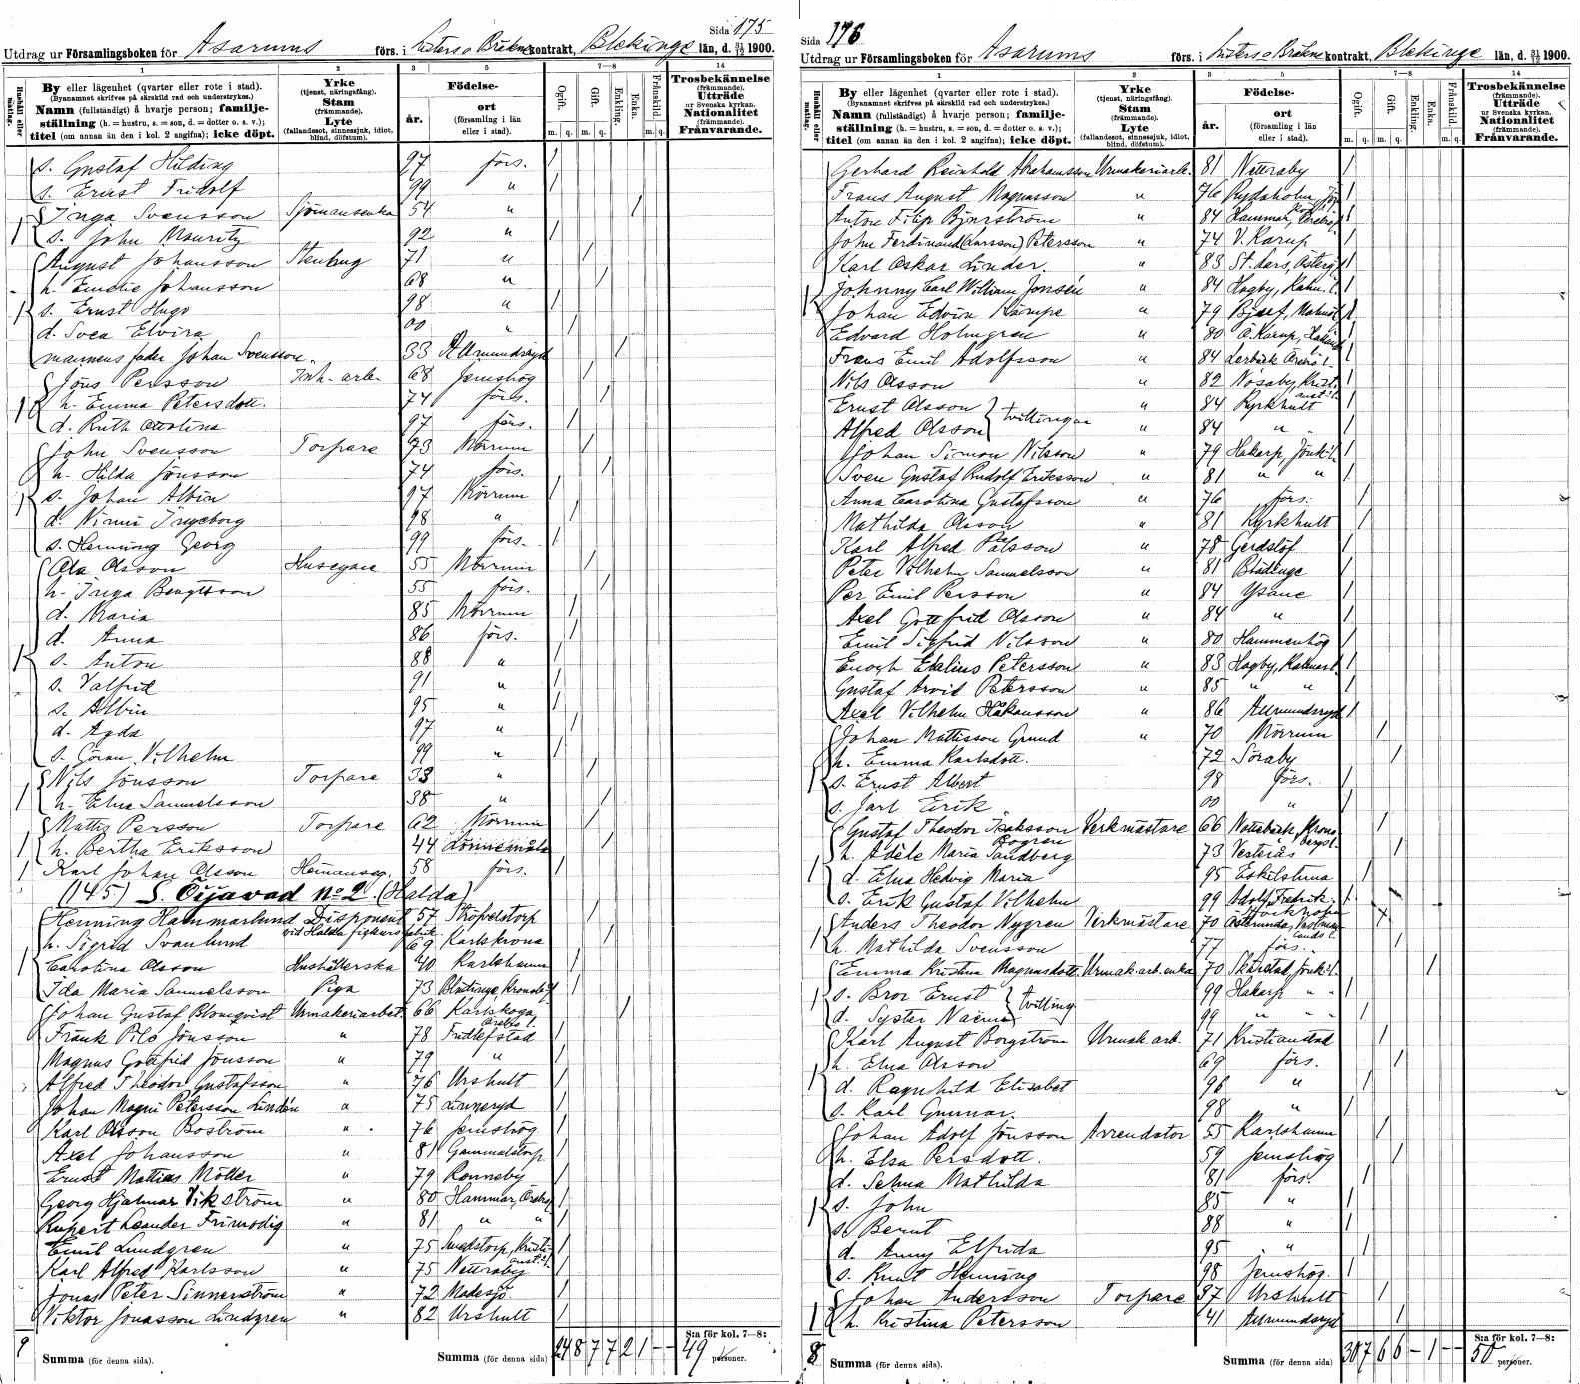 Sida 175
Utdrag ur Församlingsboken för Asarums förs. i Listers o Bräkne kontrakt, Blekinge län, d. 31/12 1900.
1 2 3 5 7—8 14
Hushåll eller matlag.
By eller lägenhet (qvarter eller rote i stad).
(Byanamnet skrifves på särskild rad och understrykes.)
Namn (fullständigt) å hvarje person; familje-
ställning (h. = hustru, s. = son, d. = dotter o. s. v.);
titel (om annan än den i kol. 2 angifna); icke döpt.
Yrke
(tjenst, näringsfång).
Stam
(främmande).
Lyte
(fallandesot, sinnessjuk, idiot, blind, döfstum).
Födelse-
år.
ort
(församling i län
eller i stad).
Ogift. Gift. Enkling. Enka. Frånskild.
m. q. m. q. m. q.
Trosbekännelse
(främmande).
Utträde
ur Svenska kyrkan.
Nationalitet
(främmande).
Frånvarande.
s. Gustaf Hilding 97 förs. 1
s. Ernst Fridolf 99 " 1
Inga Svensson Sjömansenka 54 " 1
s. John Mauritz 92 " 1
August Johansson Stenhug 71 " 1
h. Emelie Johansson 68 " 1
s. Ernst Hugo 98 " 1
d. Svea Elvira 00 " 1
mannens fader Johan Svensson 33 Almundsryd 1
Jöns Persson Inh. arb. 68 Jemshög 1
h. Emma Petersdott. 74 förs. 1
d. Ruth Ottolina 97 förs. 1
John Svensson Torpare 73 Mörrum 1
h. Hilda Jönsson 74 förs. 1
s. Johan Albin 97 Mörrum 1
d. Nimmi Ingeborg 98 " 1
s. Henning Georg 99 förs. 1
Ola Olsson Husegare 55 Mörrum 1
h. Inga Bengtsson 55 förs. 1
d. Maria 85 Mörrum 1
d. Anna 86 förs. 1
s. Anton 88 " 1
s. Valfrid 91 " 1
s. Albin 95 " 1
d. Agda 97 " 1
s. Göran Vilhelm 99 " 1
Nils Jönsson Torpare 33 " 1
h. Elna Samuelsson 38 " 1
Mattis Persson Torpare 62 Mörrum 1
h. Bertha Eriksson 44 Lönnemåla 1
Karl Johan Olsson Hemmanseg. 58 förs. 1
(145) S. Öijavad No 2. (Halda)
Henning Hammarlund Disponent vid Halda fickursfabrik 57 Ströfvelstorp 1
h. Sigrid Svanlund 69 Karlskrona 1
Carolina Olsson Hushållerska 40 Karlshamn 1
Ida Maria Samuelsson Piga 73 1
Johan Gustaf Blomqvist Urmakeriarbet. 66 Karlskoga, Örebro l. 1
Frank Pilo Jönsson " 78 Fridlefstad 1
Magnus Gottfrid Jönsson " 79 " 1
Alfred Theodor Gustafsson " 76 Urshult 1
Johan Magni Petersson Lindén " 75 Linneryd 1
Karl Olsson Boström " 76 Jemshög 1
Axel Johansson " 81 Gammalstorp 1
Ernst Mattias Möller " 79 Ronneby 1
Georg Hjalmar Vikström " 80 Hammar, Örebro 1
Rupert Leander Frimodig " 81 " " 1
Emil Lundgren " 75 Smedstorp, Kristianst. l. 1
Karl Alfred Karlsson " 75 Nettraby 1
Jonas Peter Sinnerström " 72 Madesjö 1
Viktor Jonasson Lindgren " 82 Urshult 1
9 Summa (för denna sida). Summa (för denna sida) 24 8 7 7 2 1 – –
S:a för kol. 7—8:
49 personer.
Sida 176
Utdrag ur Församlingsboken för Asarums förs. i Listers o Bräkne kontrakt, Blekinge län, d. 31/12 1900.
1 2 3 5 7—8 14
Hushåll eller matlag.
By eller lägenhet (qvarter eller rote i stad).
(Byanamnet skrifves på särskild rad och understrykes.)
Namn (fullständigt) å hvarje person; familje-
ställning (h. = hustru, s. = son, d. = dotter o. s. v.);
titel (om annan än den i kol. 2 angifna); icke döpt.
Yrke
(tjenst, näringsfång).
Stam
(främmande).
Lyte
(fallandesot, sinnessjuk, idiot, blind, döfstum).
Födelse-
år.
ort
(församling i län
eller i stad).
Ogift. Gift. Enkling. Enka. Frånskild.
m. q. m. q. m. q.
Trosbekännelse
(främmande).
Utträde
ur Svenska kyrkan.
Nationalitet
(främmande).
Frånvarande.
Gerhard Reinhold Abrahamsson Urmakeriarb. 81 Nettraby 1
Frans August Magnusson " 76 Rydaholm 1
Anton Filip Bjurström " 84 Hammar, Örebro l. 1
John Ferdinand (Larsson) Petersson " 74 V. Karup 1
Karl Oskar Linder. " 83 St. Lars, Österg. 1
Johnny Carl William Jonsén " 84 Hagby, Kalm. l. 1
Johan Edvin Kämpe " 79 1
Edvard Holmgren " 80 Ö. Karup, Halland 1
Frans Emil Adolfsson " 84 Lerbäck Örebro l. 1
Nils Olsson " 82 Nosaby, Kristianst. l. 1
Ernst Olsson } tvillingar " 84 Kyrkhult 1
Alfred Olsson " 84 " 1
Johan Simon Nilsson " 79 Hakarp, Jönk. l. 1
Sven Gustaf Rudolf Eriksson " 81 " " 1
Anna Carolina Gustafsson " 76 förs. 1
Mathilda Olsson " 81 Kyrkhult 1
Karl Alfred Pålsson " 78 Gerdslöf 1
Peter Vilhelm Samuelsson " 81 Blädinge 1
Per Emil Persson " 84 Ysane 1
Axel Gottfrid Olsson " 84 " 1
Emil Sigfrid Nilsson " 80 Hammenhög 1
Enogh Etalius Petersson " 83 Hagby, Kalmar l. 1
Gustaf Arvid Petersson " 85 " " 1
Axel Vilhelm Håkansson " 86 Almundsryd 1
Johan Mattisson Grund " 70 Mörrum 1
h. Emma Karlsdott. 72 Söraby 1
s. Ernst Albert 98 förs. 1
s. Jarl Erik 00 " 1
Gustaf Theodor Isaksson Bogren Verkmästare 66 Nottebäck, Kronobergs l. 1
h. Adèle Maria Sandberg 73 Vesterås 1
d. Elna Hedvig Maria 95 Eskilstuna 1
s. Erik Gustaf Vilhelm 99 Adolf Fredrik, Stockholm 1
Anders Theodor Nygren Verkmästare 70 Östermunda, Vestmanlands l. 1
h. Mathilda Svensson 77 förs. 1
Emma Kristina Magnusdott. Urmak. arb. enka 70 Skärstad, Jönk. l. 1
s. Bror Ernst } tvilling 99 Hakarp " " 1
d. Syster Naëma 99 " " " 1
Karl August Borgström Urmak. arb. 71 Kristianstad 1
h. Elna Olsson 69 förs. 1
d. Ragnhild Elisabet 96 " 1
s. Karl Gunnar. 98 " 1
Johan Adolf Jönsson Arrendator 55 Karlshamn 1
h. Elsa Persdott. 59 Jemshög 1
d. Selma Mathilda 81 förs. 1
s. John 85 " 1
s. Bernt 88 " 1
d. Anny Elfrida 95 " 1
s. Knut Henning 98 Jemshög 1
Johan Andersson Torpare 37 Urshult 1
h. Kristina Petersson 41 Almundsryd 1
8 Summa (för denna sida). Summa (för denna sida) 30 7 6 6 – 1 – –
S:a för kol. 7—8:
50 personer.